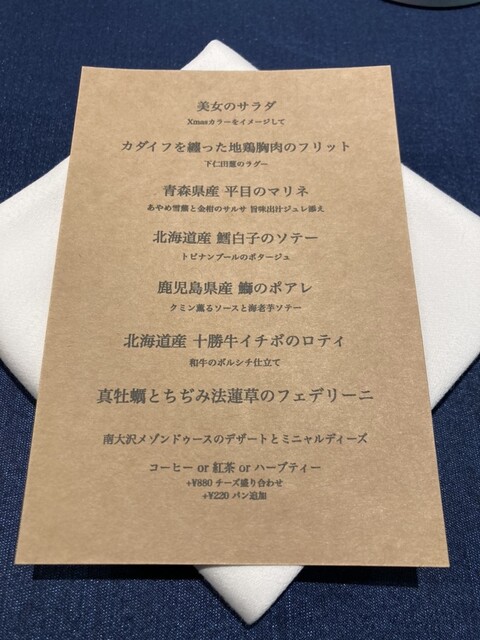 美女のサラダ
Xmasカラーをイメージして
カダイフを纏った地鶏胸肉のフリット
下仁田葱のラグー
青森県産 平目のマリネ
あやめ雪蕪と金柑のサルサ 旨味出汁ジュレ添え
北海道産 鱈白子のソテー
トピナンブールのポタージュ
鹿児島県産 鰤のポアレ
クミン薫るソースと海老芋ソテー
北海道産 十勝牛イチボのロティ
和牛のボルシチ仕立て
真牡蠣とちぢみ法蓮草のフェデリーニ
南大沢メゾンドゥースのデザートとミニャルディーズ
コーヒー or 紅茶 or ハーブティー
+¥880 チーズ盛り合わせ
+¥220 パン追加